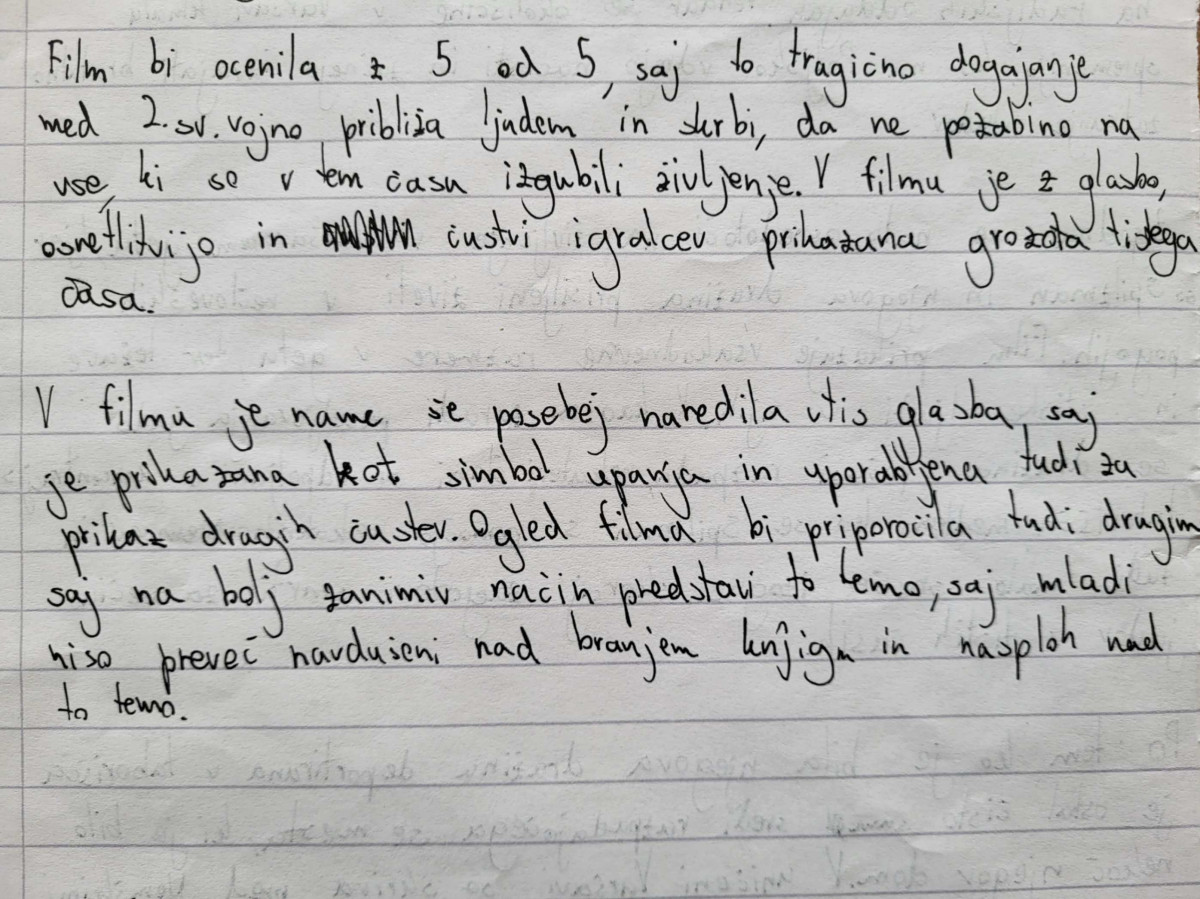 Film bi ocenila z 5 od 5, saj to tragično dogajanje
med 2. sv. vojno približa ljudem in skrbi, da ne pozabimo na
vse, ki so v tem času izgubili življenje. V filmu je z glasbo,
osvetlitvijo in čustvi igralcev prikazana grozota tistega
časa.
V filmu je name še posebej naredila vtis glasba, saj
je prikazana kot simbol upanja in uporabljena tudi za
prikaz drugih čustev. Ogled filma bi priporočila tudi drugim
saj na bolj zanimiv način predstavi to temo, saj mladi
niso preveč navdušeni nad branjem knjig in nasploh nad
to temo.